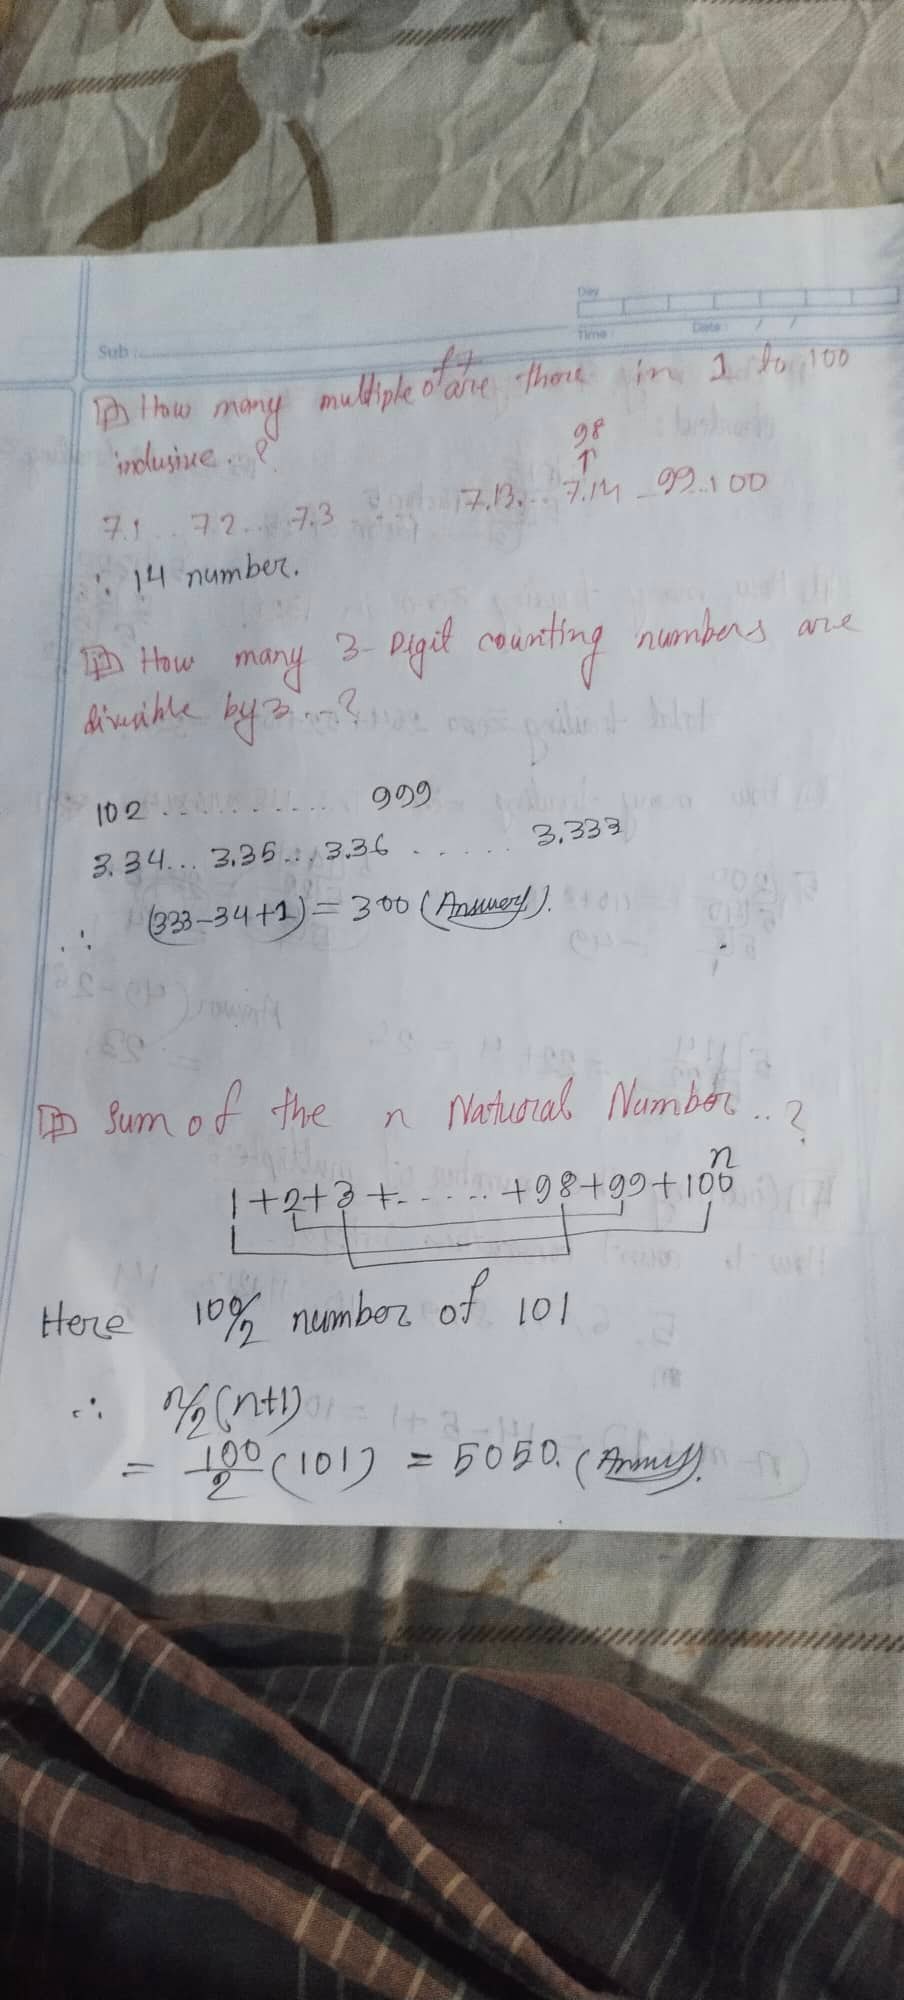 Day
Time: Date: / /
Sub:
How many multiple of 7 are there in 1 to 100
inclusive. ?
98
↑
7.1 .. 7.2 ... 7.3 7.13. .. 7.14 .. 99..100
∴ 14 number.
How many 3-Digit counting numbers are
divisible by 3...?
102 ........... 999
3.34... 3.35... 3.36 ...... 3.333
∴ (333-34+1) = 300 (Answer).
Sum of the n Natural Number..?
n
1+2+3+......+98+99+100
Here 100/2 number of 101
∴ n/2(n+1)
= 100/2 (101) = 5050. (Answer).